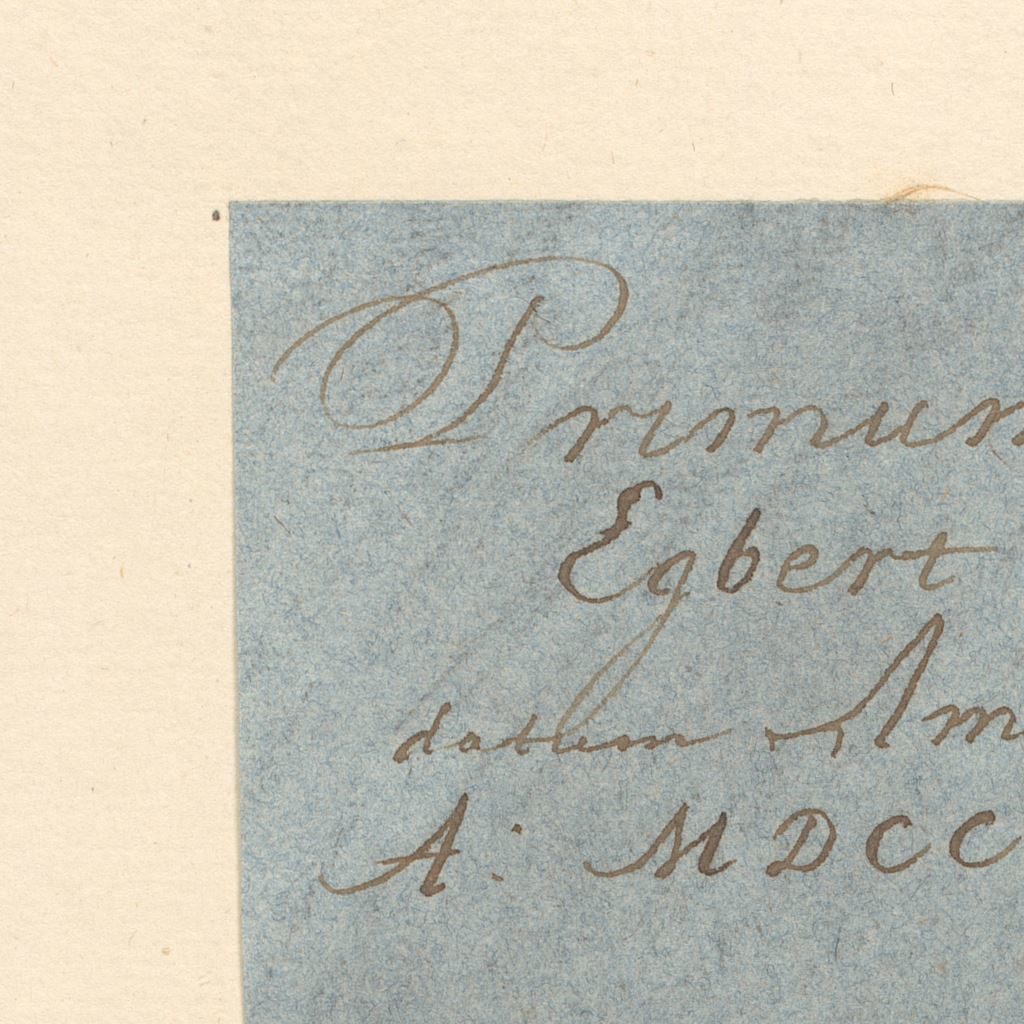 Primum
Egbert
datum Am
A: MDCC